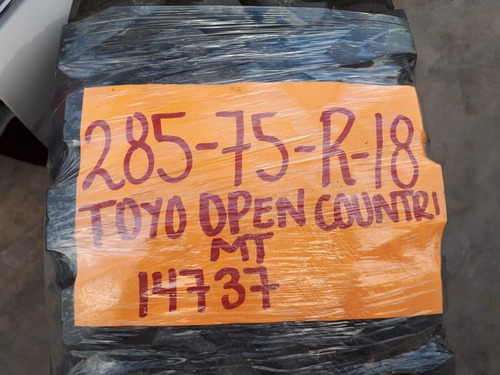 285-75-R-18
TOYO OPEN COUNTRI
MT
14737